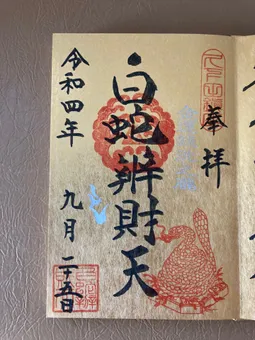 奉拝
白蛇辨財天
令和四年
九月二十五日